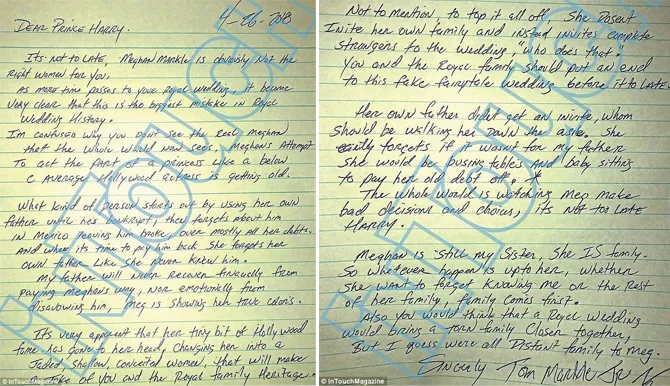 4-26-2018
DEAR PRINCE HARRY.
It's not to LATE, Meghan Markle is obviously Not the
right women for you.
As more time passes to your Royal wedding, it became
very clear that this is the biggest mistake in Royal
Wedding History.
I'm confused why you don't see the real meghan
that the whole world now sees, Meghan's Attempt
To act the part of a princess like a below
C Average Hollywood actress is getting old.
What kind of person starts out by using her own
father until hes bankrupt, then forgets about him
in Mexico leaving him broke, over mostly all her debts.
And when its time to pay him back she forgets her
own father like she never knew him.
My father will never recover financially from
paying meghan's way, Nor emotionally from
disavowing him, meg is showing her true colors.
It's very apparent that her tiny bit of Hollywood
fame has gone to her head, Changing her into a
Jaded, Shallow, conceited women, that will make
of you and the Royal family Heritage.
© InTouchMagazine
Not to mention, to top it all off, She Dosent
Invite her own family and instead invites complete
Strangers to the wedding, "who does that"
You and the Royal family should put an end
to this fake fairytale wedding before it to LATE.
Her own father didn't get an invite, whom
should be walking her down the aisle. She
forgets if it wasnt for my father
she would be busing tables and baby sitting
to pay her old debt off.
The whole world is watching Meg make
bad decisions and choices, its not too LATE
HARRY.
Meghan is still my Sister, She IS family.
So whatever happen is up to her, whether
she want to forget knowing me or the rest
of her family, family comes first.
Also you would think that a Royal Wedding
would bring a torn family closer together,
But I guess were all Distant family to meg.
Sincerly Tom Markle Jr
© InTouchMagazine